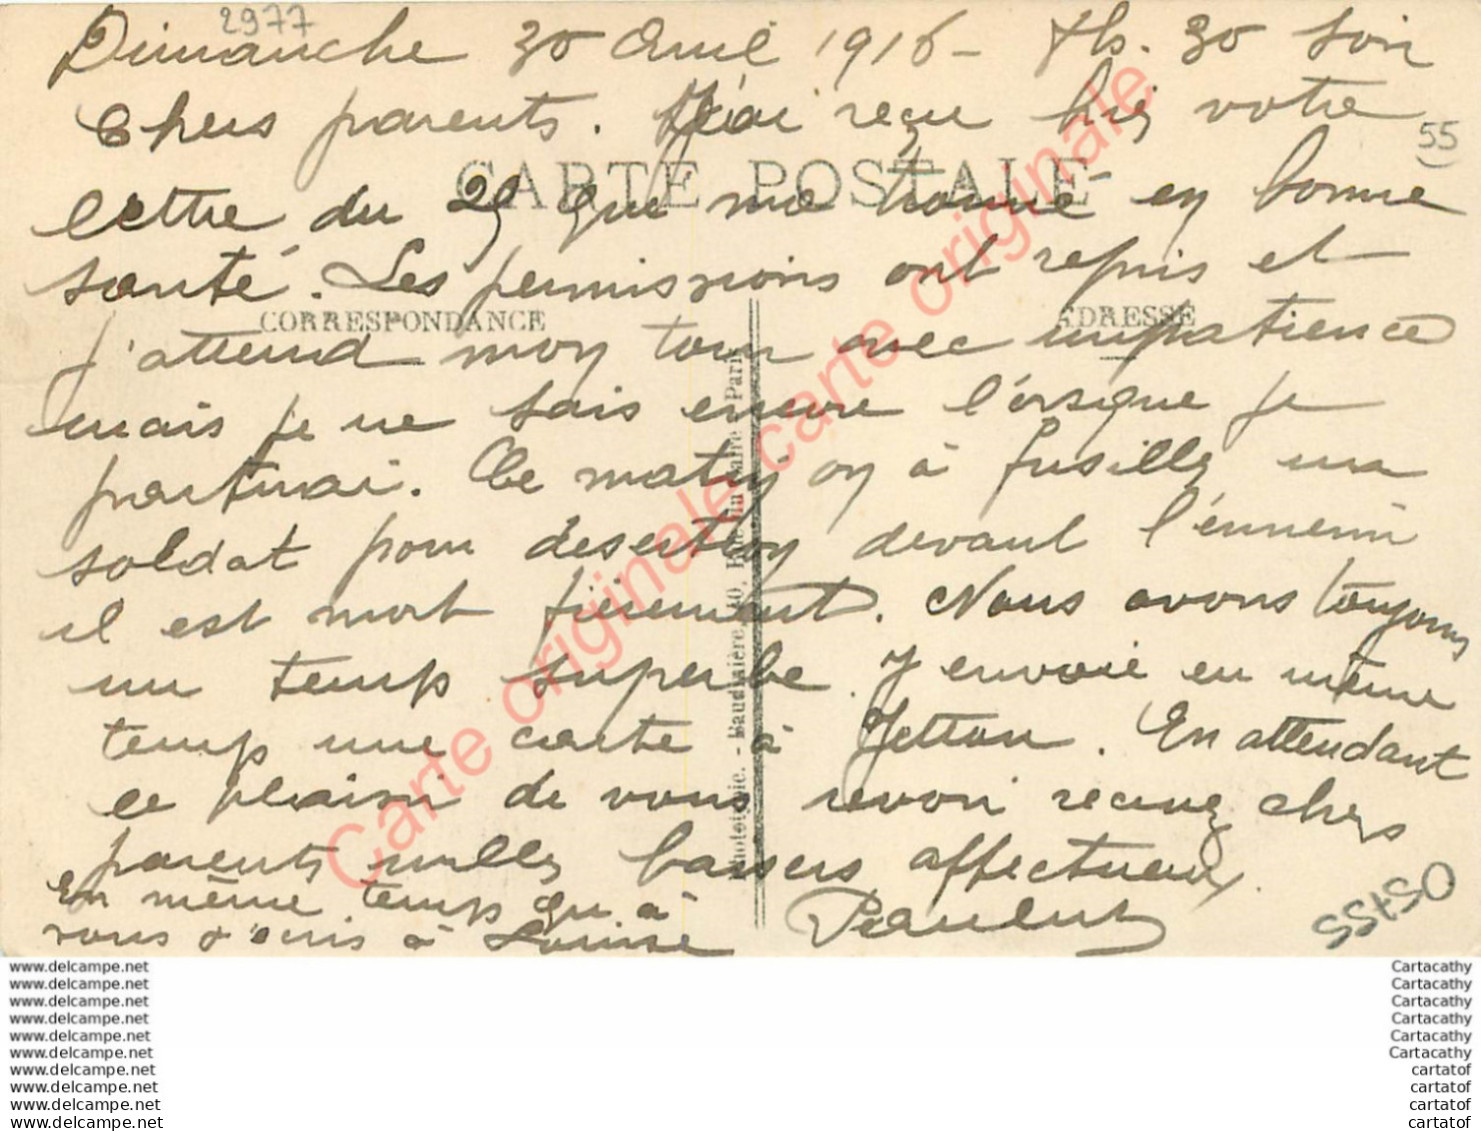 2977
Dimanche 30 Avril 1916 - 7h. 30 soir
Chers parents. J'ai reçu hier votre
55
CARTE POSTALE
lettre du 25 qui me trouve en bonne
santé. Les permissions ont repris et
CORRESPONDANCE
ADRESSE
j'attend mon tour avec impatience
mais je ne sais encore l'orsque je
partirai. Ce matin on à fusillé un
soldat pour desertion devant l'ennemi
il est mort fièrement. Nous avons toujours
un temps superbe. J'envoie en même
temps une carte à Jetton. En attendant
le plaisir de vous revoir recevez chers
parents milles baisers affectueux.
En même temps qu'à
vous j'écris à Louise
Phototypie. - Baudinière, 40, Paris
Carte originale carte originale
www.delcampe.net
www.delcampe.net
www.delcampe.net
www.delcampe.net
www.delcampe.net
www.delcampe.net
www.delcampe.net
www.delcampe.net
www.delcampe.net
www.delcampe.net
Cartacathy
Cartacathy
Cartacathy
Cartacathy
Cartacathy
Cartacathy
cartatof
cartatof
cartatof
cartatof